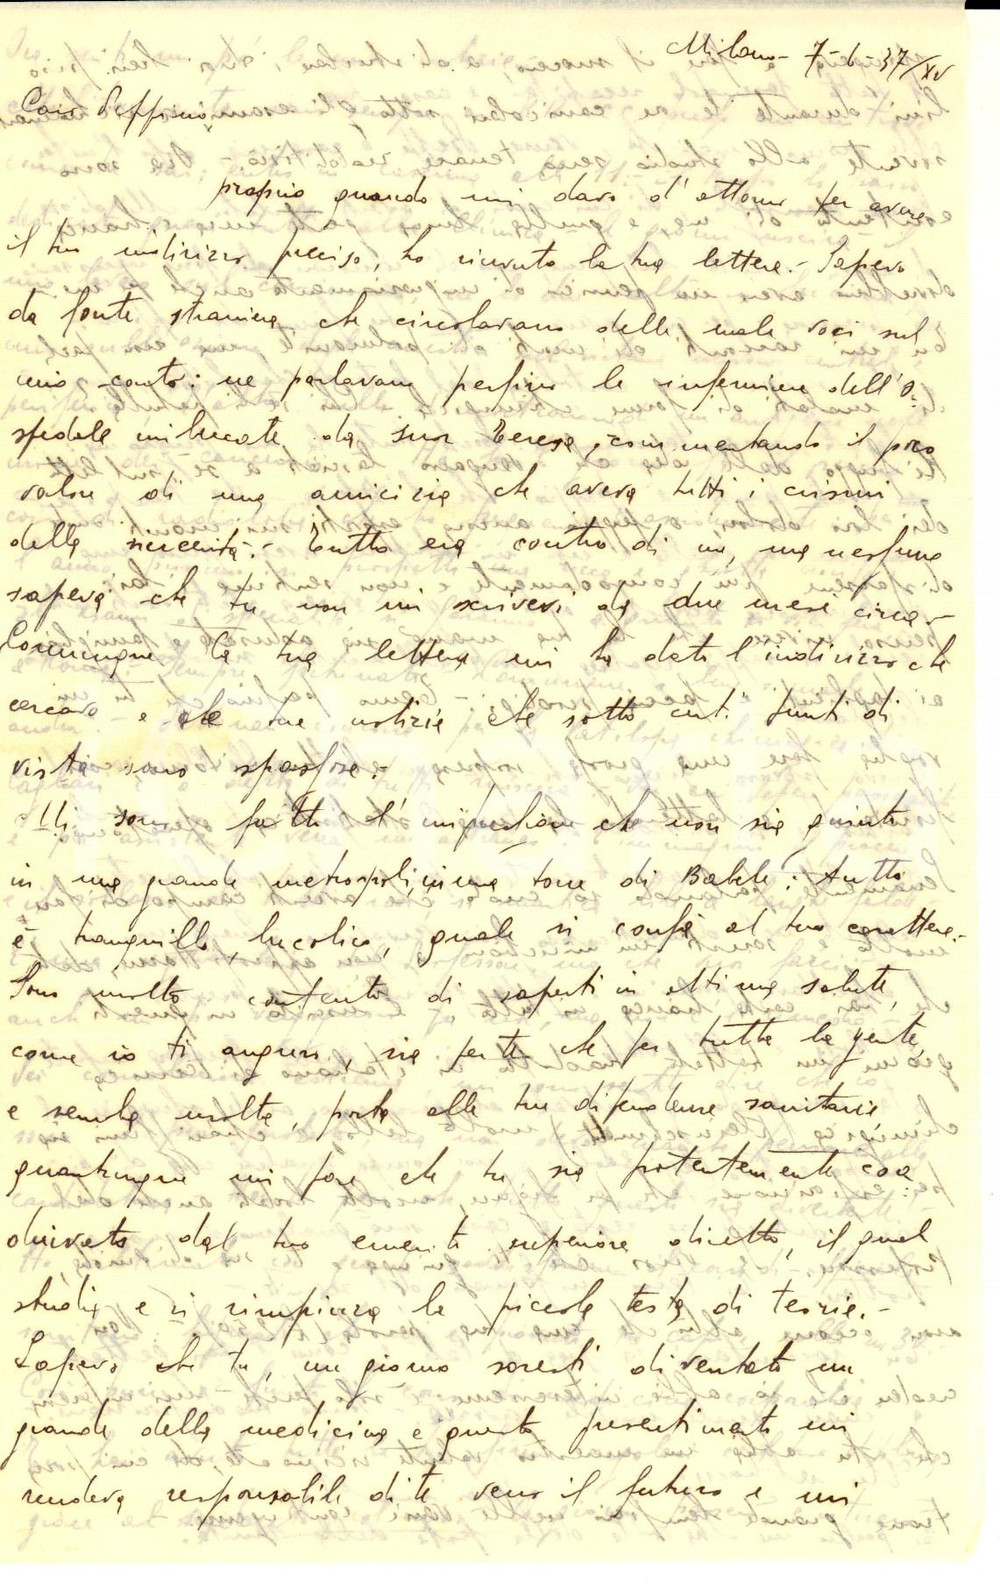 Milano - 7-6-37/XV
Caro Peppino,
proprio quando mi davo d'attorno per avere
il tuo indirizzo preciso, ho ricevuto la tua lettera. - Sapevo
da fonte straniera che circolavano delle male voci sul
mio conto: ne parlavano perfino le infermiere dell'O-
spedale imbeccate da Suor Teresa, commentando il poco
valore di una amicizia che aveva tutti i crismi
della sincerità. - Tutto era contro di me, ma nessuno
sapeva che tu non mi scrivevi da due mesi circa. -
Comunque la tua lettera mi ha dato l'indirizzo che
cercavo e le tue notizie che sotto certi punti di
vista sono spassose. -
Mi sono fatto l'impressione che non sia giunto
in una grande metropoli, in una torre di Babele: tutto
è tranquillo, bucolico, quale si confà al tuo carattere. -
Sono molto contento di saperti in ottima salute,
come io ti auguro, sia per te che per tutta la gente,
e sembra molta, posta alle tue dipendenze sanitarie
quantunque mi pare che tu sia potentemente coa-
diuvato dal tuo emerito superiore diretto, il quale
studia e si rimpinza la piccola testa di teorie. -
Sapevo che tu, un giorno saresti diventato un
grande della medicina e questo presentimento mi
rendeva responsabile di te verso il futuro e mi